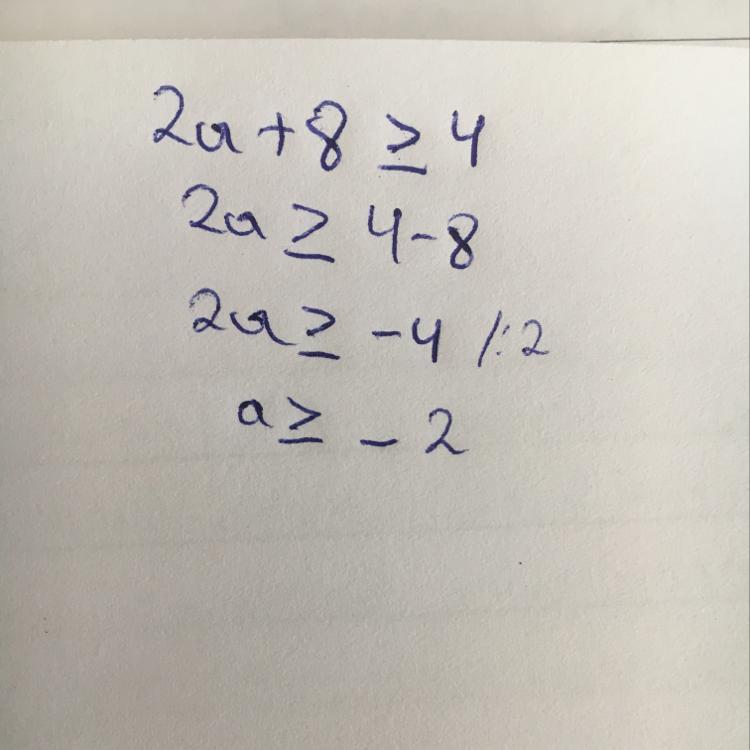 2a+8 ≥ 4
2a ≥ 4-8
2a ≥ -4 /:2
a ≥ -2